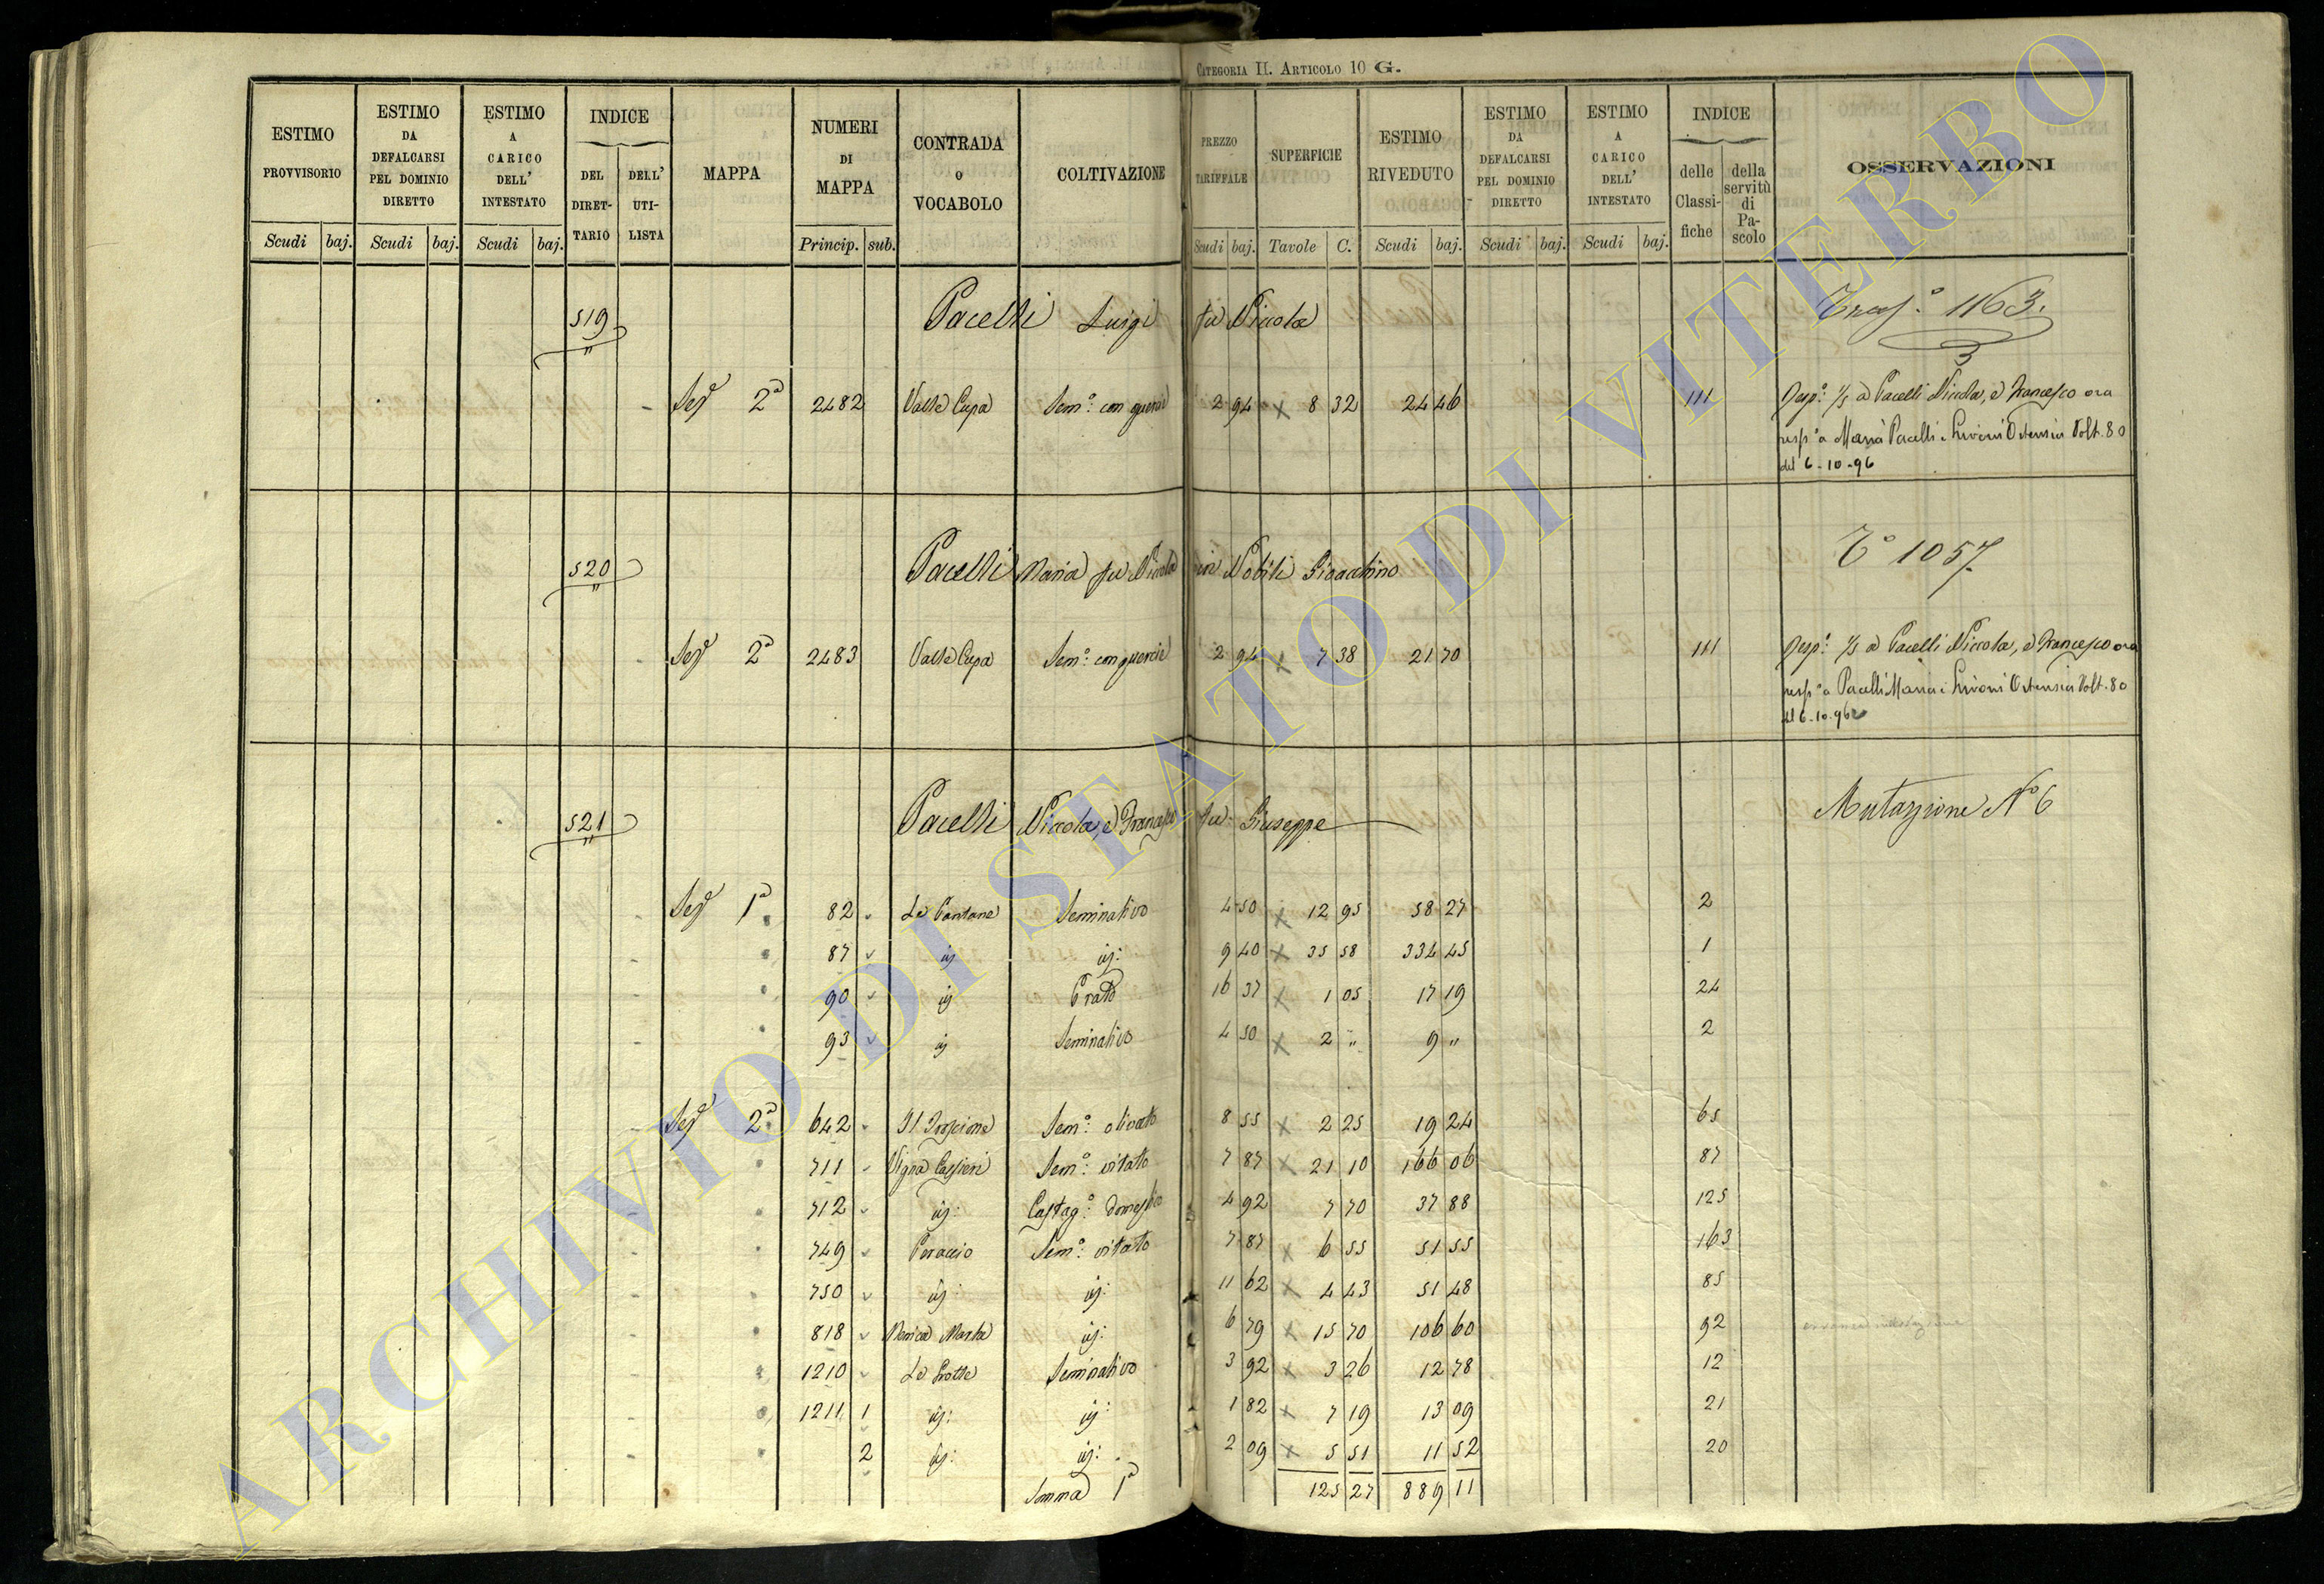 CATEGORIA II. ARTICOLO 10 G.
ESTIMO PROVVISORIO | ESTIMO DA DEFALCARSI PEL DOMINIO DIRETTO | ESTIMO A CARICO DELL' INTESTATO | INDICE DEL DIRETTARIO | DELL' UTILISTA | MAPPA | NUMERI DI MAPPA | CONTRADA O VOCABOLO | COLTIVAZIONE | PREZZO TARIFFALE | SUPERFICIE | ESTIMO RIVEDUTO | ESTIMO DA DEFALCARSI PEL DOMINIO DIRETTO | ESTIMO A CARICO DELL' INTESTATO | INDICE delle Classifiche | della servitù di Pascolo | OSSERVAZIONI
Scudi baj. Scudi baj. Scudi baj. Princip. sub. Scudi baj. Tavole C. Scudi baj. Scudi baj. Scudi baj.
519 Pacelli Luigi fu Niccola 1163.
3
Sez 2a 2482 Valle Cupa Sem.o con querce 2 94 8 32 24 46 111 Resp.e 1/5 a Pacelli Niccola, e Francesco ora
resp.e a Maria Pacelli e Ostensia Volt. 80
del 6-10-96
520 Pacelli Maria fu Niccola in Nobili Gioacchino To 1057.
Sez 2a 2483 Valle Cupa Sem.o con quercie 2 94 7 38 21 70 111 Resp.e 1/5 a Pacelli Niccola, e Francesco ora
resp.e a Pacelli Maria e Ostensia Volt. 80
del 6-10-96
521 Pacelli Niccola, e Francesco fu Giuseppe Mutazione No 6
Sez 1a 82 Le Pantane Seminativo 4 50 12 95 58 27 2
87 id id: 9 40 35 58 334 45 1
90 id Prato 16 37 1 05 17 19 24
93 id Seminativo 4 50 2 " 9 " 2
Sez 2a 642 Sem.o olivato 8 55 2 25 19 24 65
711 Vigna Sem.o vitato 7 87 21 10 166 06 87
712 id: Castag.o domestico 4 92 7 70 37 88 125
749 Sem.o vitato 7 87 6 55 51 55 163
750 id: id: 11 62 4 43 51 48 85
818 id: 6 79 15 70 106 60 92
1210 Le Grotte Seminativo 3 92 3 26 12 78 12
1211 1 id: id: 1 82 7 19 13 09 21
2 id: id: 2 09 5 51 11 52 20
Somma 1a 125 27 889 11
ARCHIVIO DI STATO DI VITERBO